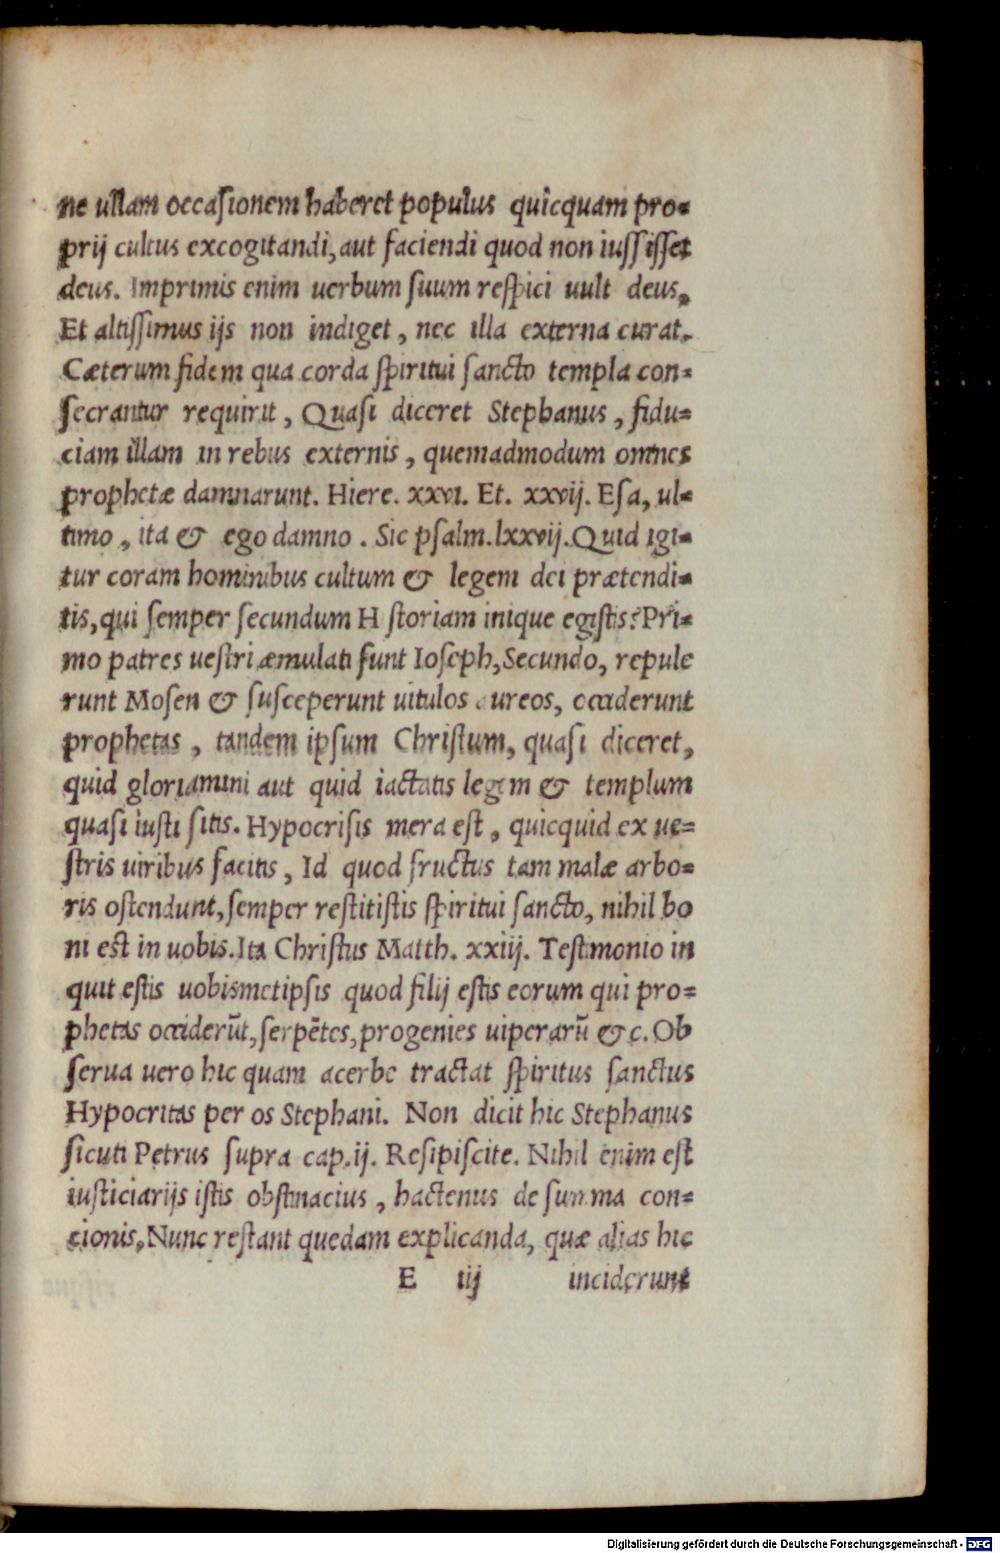 ne ullam occasionem haberet populus quicquam pro-
prij cultus excogitandi, aut faciendi quod non iussisset
deus. Imprimis enim uerbum suum respici uult deus,
Et altissimus ijs non indiget, nec illa externa curat.
Cæterum fidem qua corda spiritui sancto templa con-
secrantur requirit, Quasi diceret Stephanus, fidu-
ciam illam in rebus externis, quemadmodum omnes
prophetæ damnarunt. Hiere. xxvi. Et. xxvij. Esa, ul-
timo, ita & ego damno. Sic psalm. lxxvij. Quid igi-
tur coram hominibus cultum & legem dei prætendi-
tis, qui semper secundum H storiam inique egistis? Pri-
mo patres uestri æmulati sunt Ioseph, Secundo, repule
runt Mosen & susceperunt uitulos aureos, occiderunt
prophetas, tandem ipsum Christum, quasi diceret,
quid gloriamini aut quid iactatis legem & templum
quasi iusti sitis. Hypocrisis mera est, quicquid ex ue-
stris uiribus facitis, Id quod fructus tam malæ arbo-
ris ostendunt, semper restitistis spiritui sancto, nihil bo
ni est in uobis. Ita Christus Matth. xxiij. Testimonio in
quit estis uobismetipsis quod filij estis eorum qui pro-
phetas occiderūt, serpētes, progenies uiperarū &c. Ob
serua uero hic quam acerbe tractat spiritus sanctus
Hypocritas per os Stephani. Non dicit hic Stephanus
sicuti Petrus supra cap. ij. Resipiscite. Nihil enim est
iusticiarijs istis obstinacius, hactenus de summa con-
cionis, Nunc restant quedam explicanda, quæ alias hic
E iij incider̨unt
Digitalisierung gefördert durch die Deutsche Forschungsgemeinschaft - DFG